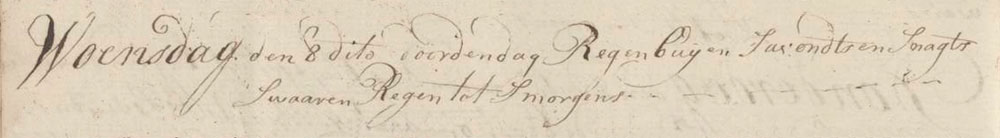 Woensdag den 8 dito voordendag Regenbuyen Savondts en Snagts
Swaaren Regen tot Smorgens - - - - -